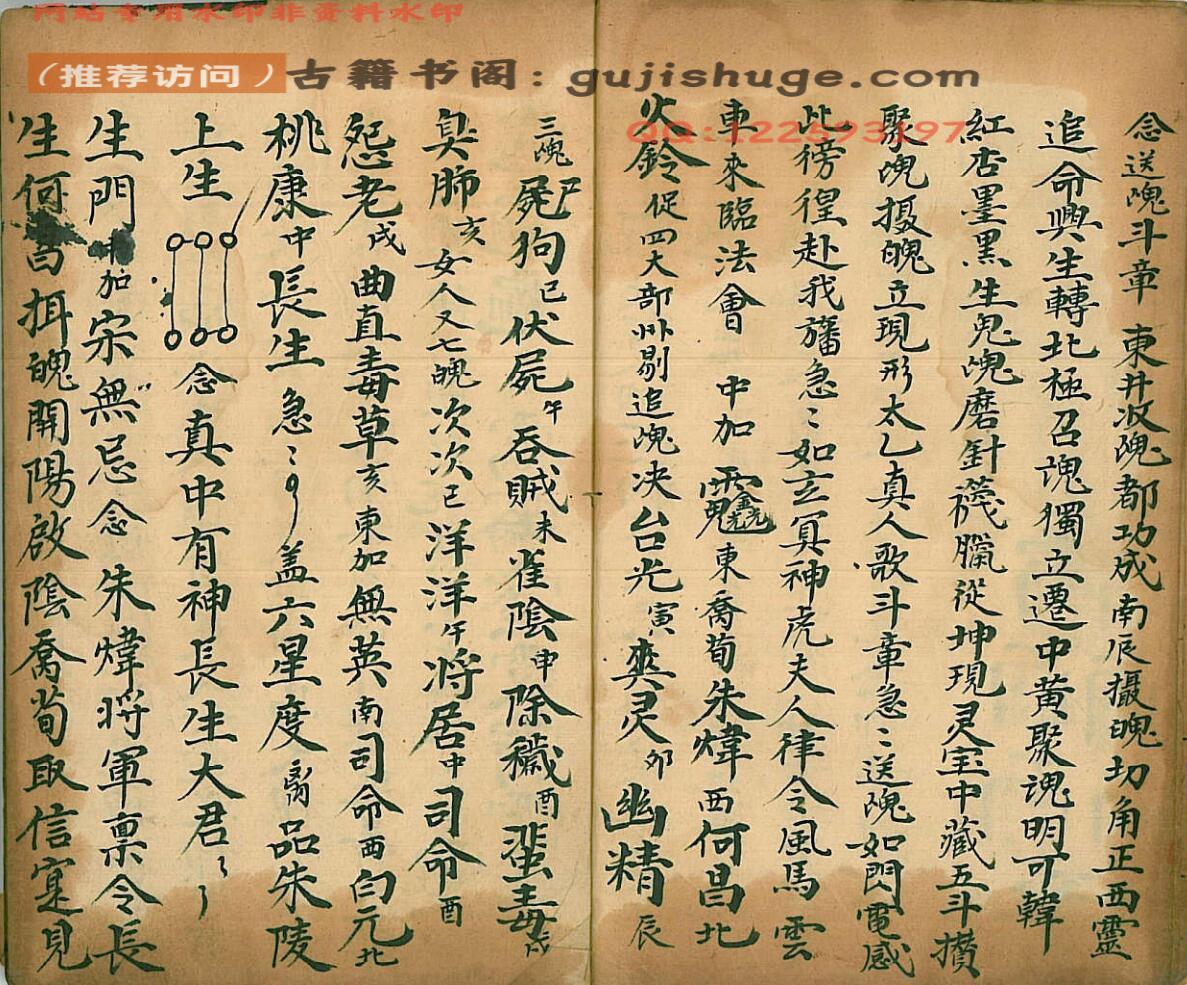 网站专用水印非资料水印
（推荐访问）古籍书阁：gujishuge.com
QQ:122593197
念送魂斗章 東井収魂都功成 南辰攝魄切角正 西靈
追命興生轉 北極召魂獨立遷 中黃聚魂明可韓
紅杏墨黑生児魂 磨針 臘從坤現 灵宝中藏五斗攢
聚魂摄魄立現形 太乙真人歌斗章 急〻送魂如閃電 感
此徬徨赴我旛 急〻如玄冥神虎夫人律令 風馬雲
車來臨法會 中加 東喬荀 朱煒 西何昌 北
火鈴 促四大部 追魂决 台光寅 爽灵卯 幽精辰
三魂 屍狗巳 伏屍午 吞贼未 雀陰申 除穢酉 蜚毒戌
臭肺亥 女人又七魄 次次巳 洋洋午 将居中 司命酉
怨老戌 曲直毒草亥 東加無英 南司命 西白元 北
桃康 中長生 急〻 盖六星度 品朱陵
上生 念真中有神長生大君〻〻
生門 加宋無忌 念朱煒將軍禀令長
生何昌 魄開陽啟陰喬荀取信寔見